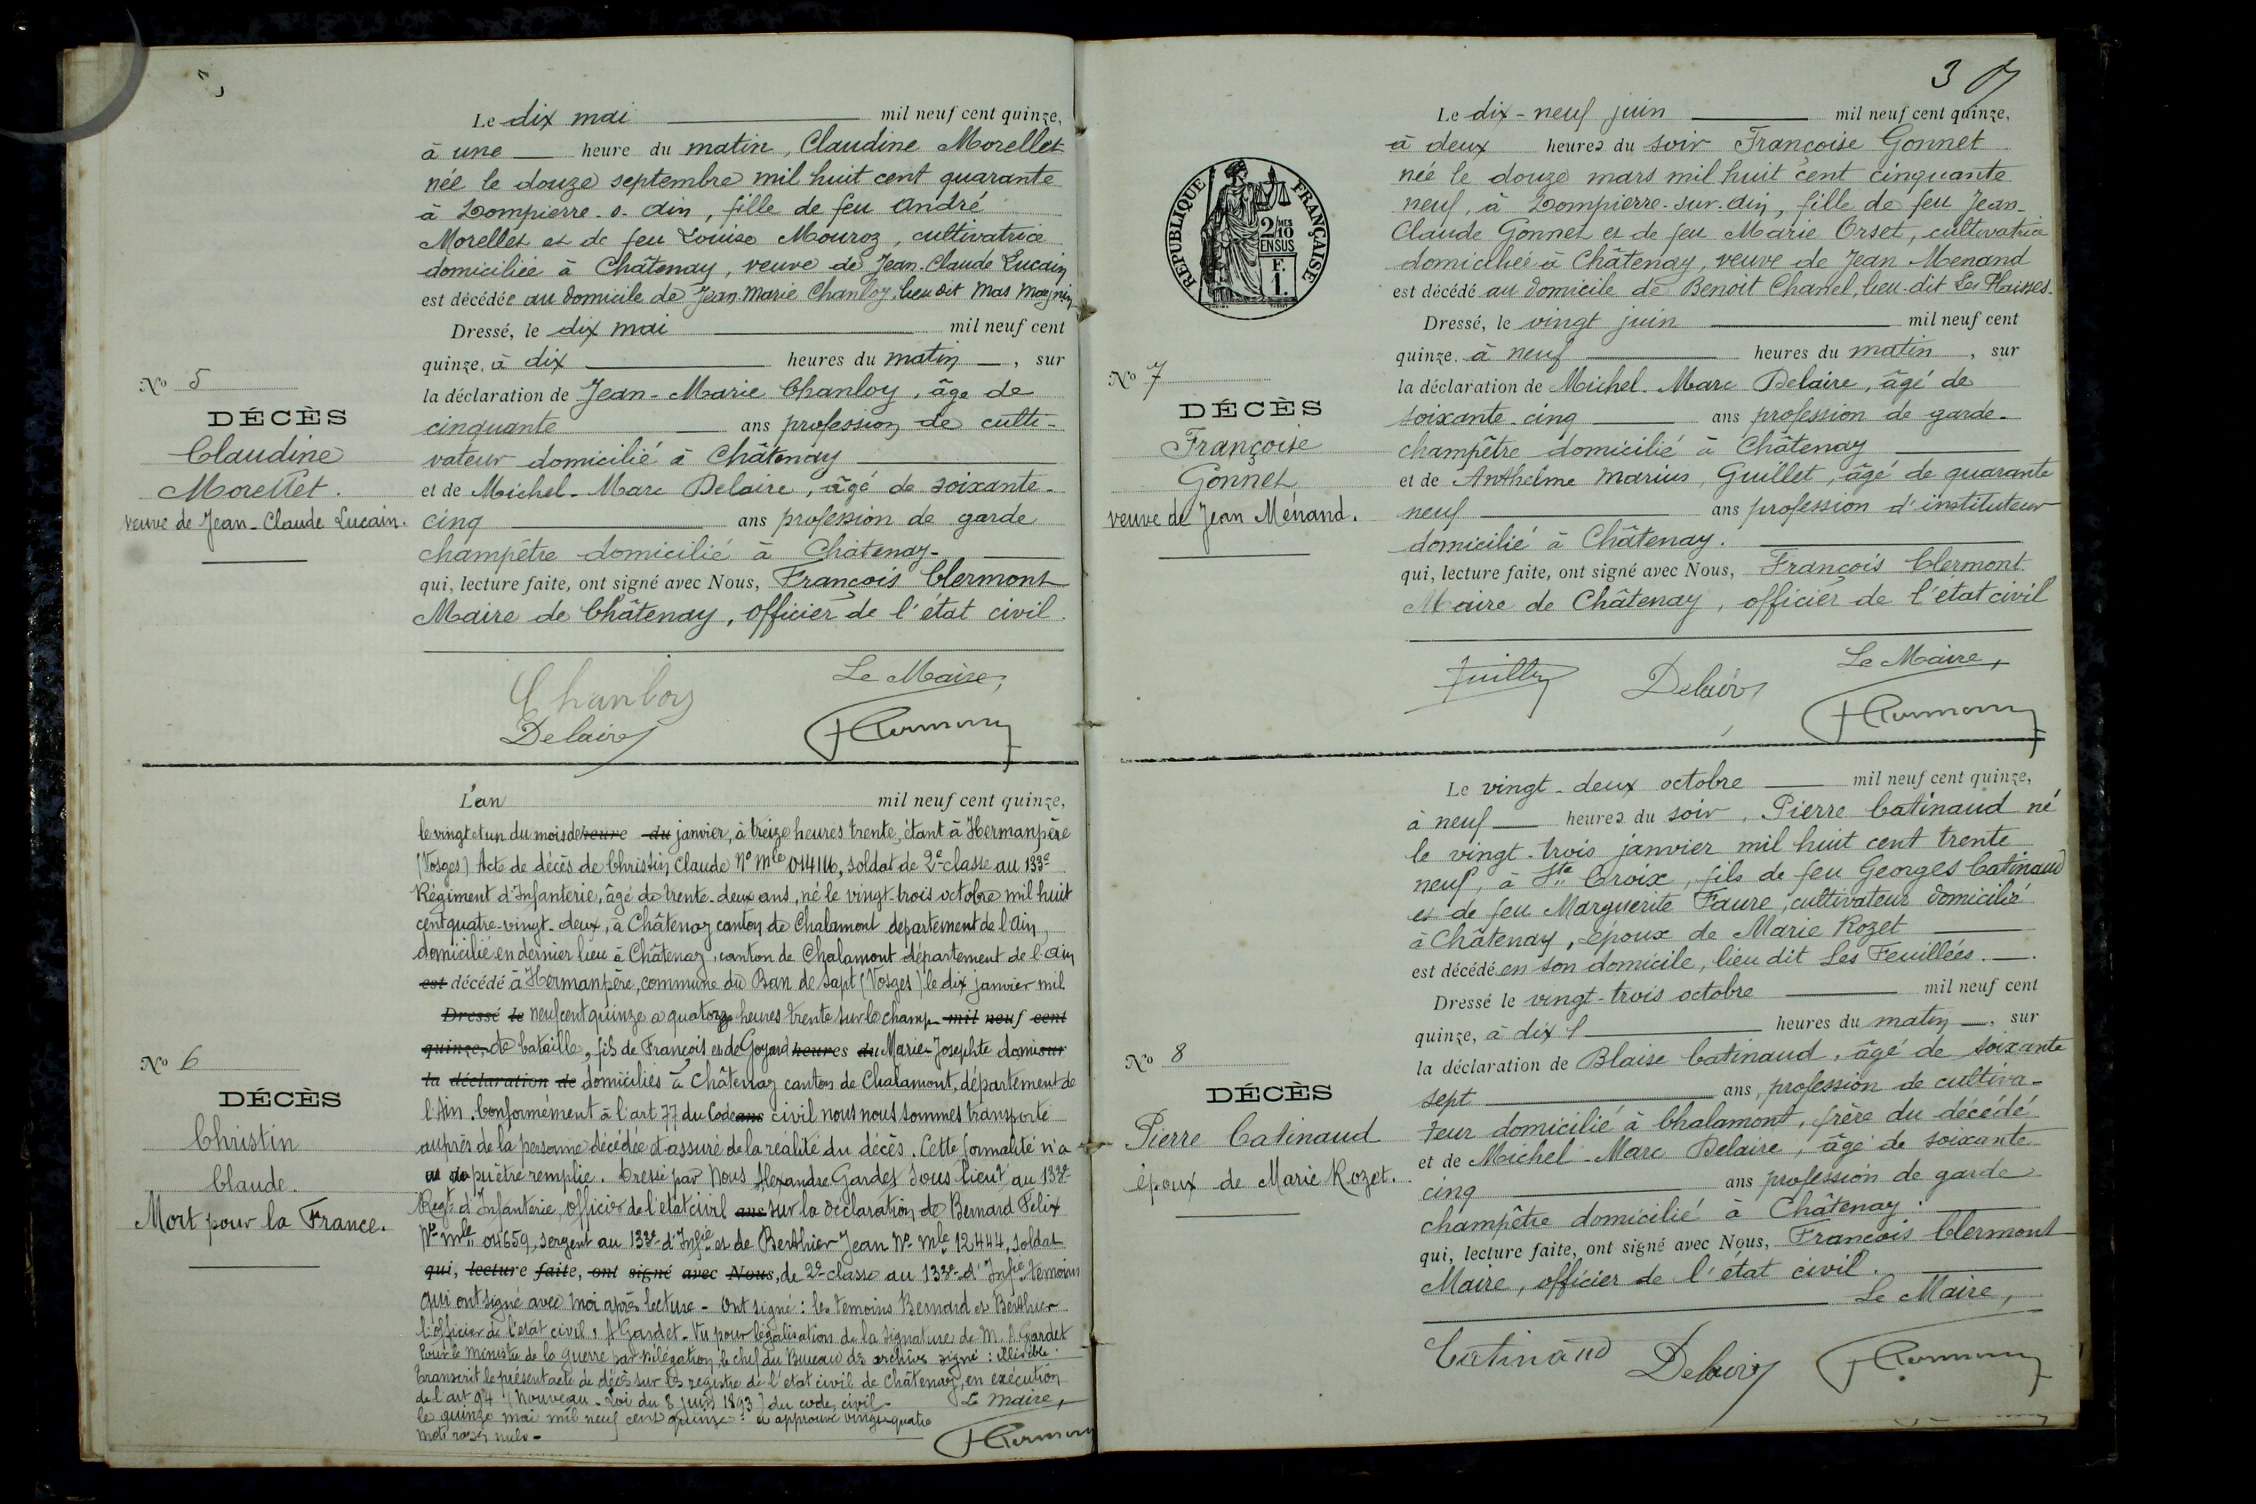 Le dix mai mil neuf cent quinze,
à une heure du matin, Claudine Morellet
née le douze septembre mil huit cent quarante
à Dompierre-s-Ain, fille de feu André
Morellet et de feu Louise Mouroz, cultivatrice
domiciliée à Châtenay, veuve de Jean-Claude Lucain
est décédée au domicile de Jean Marie Chanloy, lieu dit Mas Magnin
Dressé, le dix mai mil neuf cent
quinze, à dix heures du matin, sur
la déclaration de Jean-Marie Chanloy, âge de
cinquante ans profession de culti-
vateur domicilié à Châtenay
et de Michel-Marc Delaire, âgé de soixante-
cinq ans profession de garde
champêtre domicilié à Châtenay-
qui, lecture faite, ont signé avec Nous, François Clermont
Maire de Châtenay, officier de l'état civil.
No 5
DÉCÈS
Claudine
Morellet.
veuve de Jean-Claude Lucain.
Le Maire,
Chanloy
Delaire
FClermont
L'an mil neuf cent quinze,
le vingt et un du mois de heure du janvier, à treize heures trente, étant à Hermanpère
(Vosges) Acte de décès de Christin Claude No Mle 014116, soldat de 2e classe au 133e
Régiment d'Infanterie, âgé de trente-deux ans, né le vingt-trois octobre mil huit
cent quatre-vingt-deux, à Châtenay canton de Chalamont département de l'Ain,
domicilié en dernier lieu à Châtenay, canton de Chalamont département de l'Ain
est décédé à Hermanpère, commune du Ban de Sapt (Vosges) le dix janvier mil
Dressé le neuf cent quinze a quatorze heures trente sur le champ mil neuf cent
quinze, de bataille, fils de François et de Goyard heures du Marie Josephte domi sur
la déclaration de domiciliés à Châtenay canton de Chalamont, département de
l'Ain. Conformément à l'art 77 du Code ans civil nous nous sommes transporté
auprès de la personne décédée et assuré de la réalité du décès. Cette formalité n'a
pu être remplie. Dressé par Nous Alexandre Gardet Sous lieut au 133e
Regt d'Infanterie, officier de l'état civil ans sur la déclaration de Bernard Félix
No Mle 04659, sergent au 133e d'Infie et de Berthier Jean No Mle 12444, soldat
qui, lecture faite, ont signé avec Nous, de 2e classe au 133e d'Infie témoins
qui ont signé avec moi après lecture - Ont signé : les témoins Bernard et Berthier
l'officier de l'état civil, A Gardet. Vu pour légalisation de la signature de M. A Gardet
Pour le Ministre de la guerre par délégation, le chef du Bureau des archives signé : illisible.
Transcrit le présent acte de décès sur les registre de l'état civil de Châtenay, en exécution
de l'art 94 (Nouveau. Loi du 8 juin 1893) du code civil. Le Maire,
le quinze mai mil neuf cent quinze et approuvé vingt-quatre
mots rayés nuls-
FClermont
No 6
DÉCÈS
Christin
Claude.
Mort pour la France.
3
RÉPUBLIQUE FRANÇAISE
2/10 MES
EN SUS
F.
1.
Le dix-neuf juin mil neuf cent quinze,
à deux heures du soir Françoise Gonnet
née le douze mars mil huit cent cinquante
neuf, à Dompierre-sur-Ain, fille de feu Jean-
Claude Gonnet et de feu Marie Orset, cultivatrice
domiciliée à Châtenay, veuve de Jean Menand
est décédé au domicile de Benoit Chanel, lieu-dit Les Plaisses.
Dressé, le vingt juin mil neuf cent
quinze, à neuf heures du matin, sur
la déclaration de Michel-Marc Delaire, âgé de
soixante-cinq ans profession de garde-
champêtre domicilié à Châtenay
et de Anthelme Marius, Guillet, âgé de quarante
neuf ans profession d'instituteur
domicilié à Châtenay.
qui, lecture faite, ont signé avec Nous, François Clermont
Maire de Châtenay, officier de l'état civil
No 7
DÉCÈS
Françoise
Gonnet
veuve de Jean Ménand.
Le Maire,
Guillet
Delaire
FClermont
Le vingt-deux octobre mil neuf cent quinze,
à neuf heures du soir, Pierre Catinaud né
le vingt-trois janvier mil huit cent trente
neuf, à Ste Croix, fils de feu Georges Catinaud
et de feu Marguerite Faure, cultivateur domicilié
à Châtenay, époux de Marie Rozet
est décédé en son domicile, lieu dit Les Feuillées.
Dressé le vingt-trois octobre mil neuf cent
quinze, à dix heures du matin, sur
la déclaration de Blaise Catinaud, âgé de soixante
sept ans, profession de cultiva-
teur domicilié à Chalamont, frère du décédé
et de Michel-Marc Delaire, âgé de soixante
cinq ans profession de garde
champêtre domicilié à Châtenay.
qui, lecture faite, ont signé avec Nous, François Clermont
Maire, officier de l'état civil.
No 8
DÉCÈS
Pierre Catinaud
époux de Marie Rozet.
Le Maire,
Catinaud
Delaire
FClermont